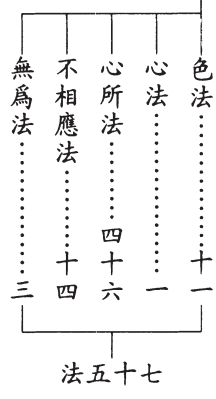 色法⋯⋯⋯⋯十一
心法⋯⋯⋯⋯一
心所法⋯⋯⋯四十六
不相應法⋯⋯十四
無爲法⋯⋯⋯三
法五十七